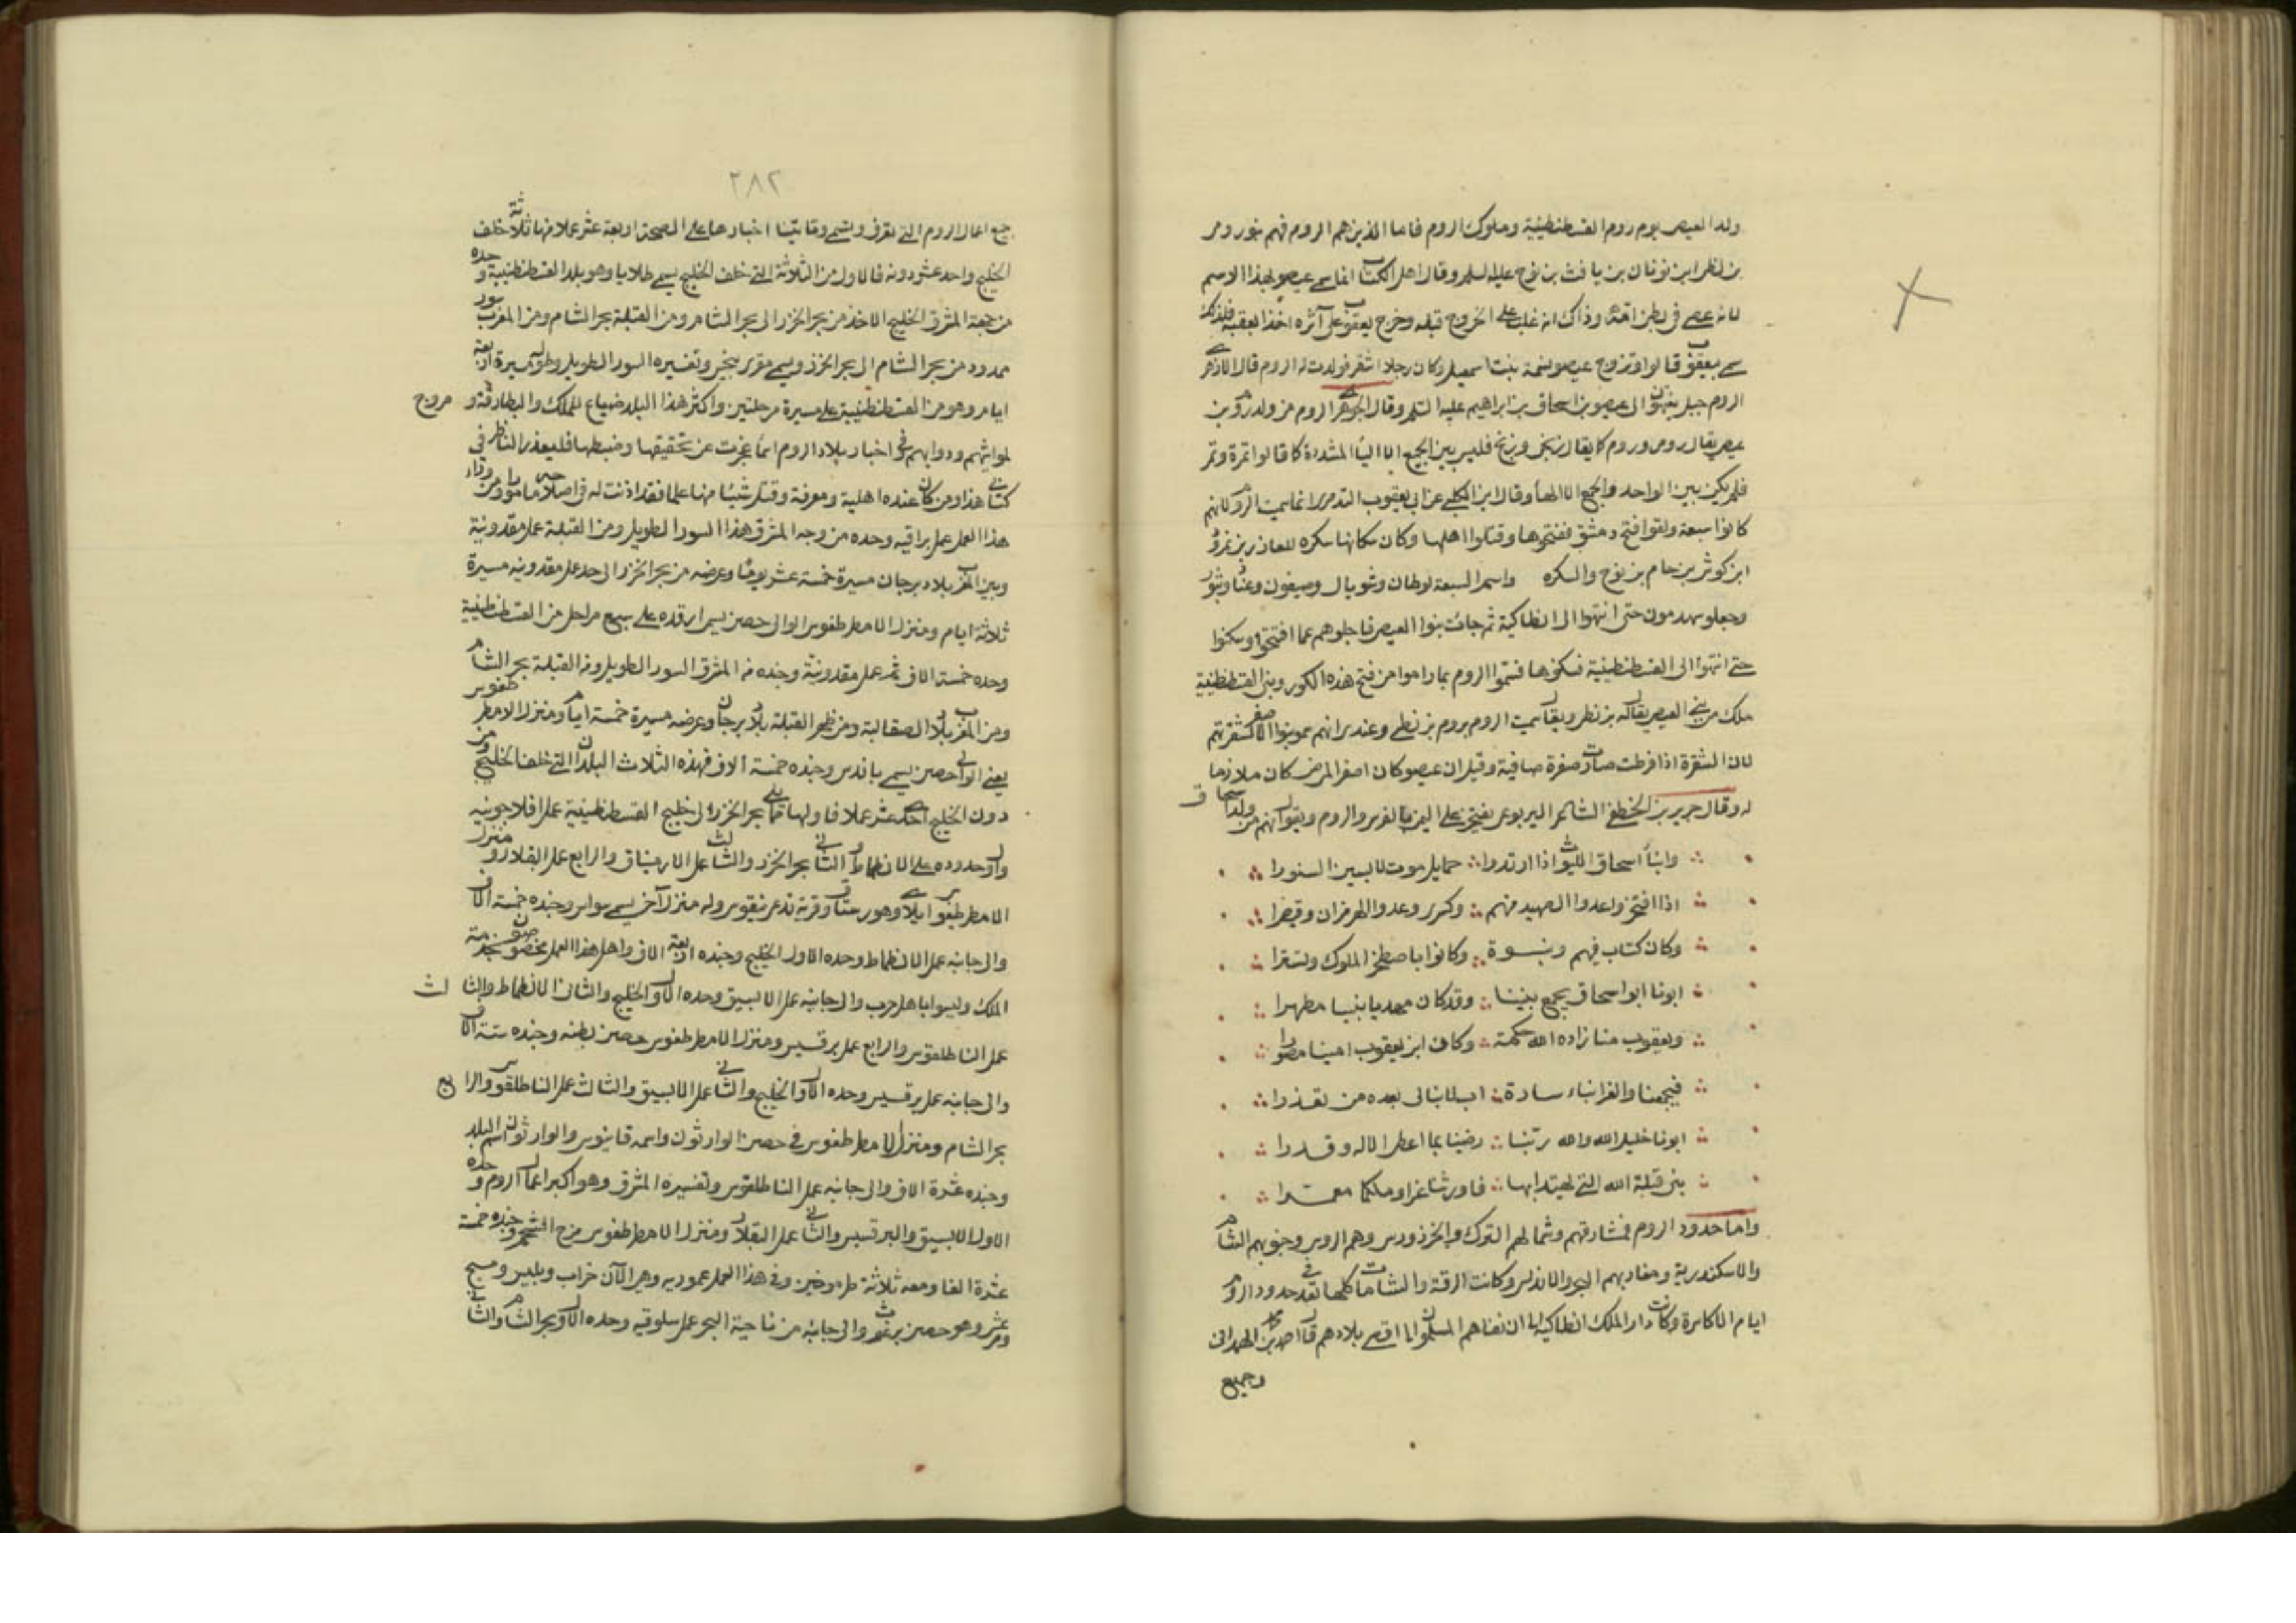 ولد العيص يوم روم القسطنطينية وملوك الروم فاما الذين هم الروم فهم بنو رومر
بن لنطر ابن يونان بن يافث بن نوح عليه السلم وقال اهل الكتاب انما سمي عيصو بهذا الاسم
لانه عصى في بطن امه وذاك انه غلب على الخروج قبله وخرج يعقوب على آثره اخذا بعقبه فلذلك
سمي يعقوب قالوا وتزوج عيصو بسمة بنت اسمعيل وكان رجلا اشقر فولدت له الروم قال الازهري
الروم جيل ينتمون الى عيصو بن اسحاق بن ابراهيم عليه السلم وقال الجوهري الروم من ولد روم بن
عيص يقال رومي وروم كما يقال زنجي وزنج فليس بين الجمع الا اليا المشددة كما قالوا تمرة وتمر
فلم يكن بين الواحد والجمع الا الها وقال ابن الكلبي عن ابي يعقوب التدمري انما سميت الروم لانهم
كانوا سبعة ولقوا فتح دمشق ففتحوها وقتلوا اهلها وكان سكانها سكره للعازر بن نمرود
ابن كوش بن حام بن نوح والسكره واسم السبعة لوطان وشوبال وصيفون وعنا وبثور
وجعلو يهدمون حتى انتهوا الى انطاكية ثم جات بنوا العيص فاجلوهم عما افتتحوا وسكنوا
حتى انتهوا الى القسطنطينية فسكنوها فسموا الروم بما راموا من فتح هذه الكور وبنى القسطنطينية
ملك من بني العيص يقال له بزنطر ويقال سميت الروم بروم بن بزنطي وعندي انهم سموا بنوا الاصفر لشقرتهم
لان الشقرة اذا فرطت صارت صفرة صافية وقيل ان عيصو كان اصفر المرض كان ملازما
له وقال جرير بن الخطفي الشاعر اليربوعي يفتخر على اليمن بالفرس والروم ويقول انهم من ولد اسحاق
وابنا اسحاق الليوث اذا ارتدوا حمايل موت لابسين السنورا
اذا افتخروا عدوا الصبهبد منهم وكسرى وعدوا الهرمزان وقيصرا
وكان كتاب فيهم ونبوة وكانوا باصطخر الملوك وتسترا
ابونا ابو اسحاق يجمع بيننا وقد كان مهديا نبيا مطهرا
ويعقوب منا زاده الله حكمة وكان ابن يعقوب امينا مصورا
فيجمعنا والغر ابناء سادة اب لا نبالي بعده من تعذرا
ابونا خليل الله والله ربنا رضينا بما اعطى الاله وقدرا
بنى قبلة الله التي يهتدى بها فاورثنا عزا وملكا معمرا
واما حدود الروم فمشارقهم وشمالهم الترك والخزر ورس وهم الروس وجنوبهم الشام
والاسكندرية ومغاربهم البحر والاندلس وكانت الرقة والشامات كلها تعد في حدود الروم
ايام الاكاسرة وكانت دار الملك انطاكية الى ان نفاهم المسلمون الى اقصى بلادهم قال احمد بن محمد الهمداني
وجميع
٢٨٢
جميع اعمال الروم التي تعرف وتسمى وتاتينا اخبارها على الصحة اربعة عشر عملا منها ثلاثة خلف
الخليج واحد عشر دونه فالاول من الثلاثة التي خلف الخليج يسمى طلايا وهو بلد القسطنطينية وحده
من جهة المشرق الخليج الاخذ من بحر الخزر الى بحر الشام ومن القبلة بحر الشام ومن المغرب سور
ممدود من بحر الشام الى بحر الخزر ويسمى مقرن بيخس وتفسيره السور الطويل وطوله مسيرة اربعة
ايام وهو من القسطنطينية على مسيرة مرحلتين واكثر هذا البلد ضياع للملك والبطارقة ومروج
لمواشيهم ودوابهم وفي اخبار بلاد الروم اسما عجزت عن تحقيقها وضبطها فليعذر الناظر في
كتابي هذا ومن كان عنده اهلية ومعرفة وقتل شيئا منها علما فقد اذنت له في اصلاحه ماجورا ومن وراء
هذا العمل عمل براقية وحده من وجه المشرق هذا السور الطويل ومن القبلة عمل مقدونية
وبين المغرب بلاد برجان مسيرة خمسة عشر يوما وعرضه من بحر الخزر الى حد عمل مقدونية مسيرة
ثلاثة ايام ومنزل الامطرطغوس الوالي حصن يسمى ارقده على سبع مراحل من القسطنطينية
وجنده خمسة الاف ثم عمل مقدونية وحده من المشرق السور الطويل ومن القبلة بحر الشام
ومن المغرب بلاد الصقالبة ومن ظهر القبلة بلاد برجان وعرضه مسيرة خمسة ايام ومنزل الامطرطغوس
يعني الوالي حصن يسمى باندس وجنده خمسة الاف فهذه الثلاث البلدان التي خلف الخليج ومن
دون الخليج احد عشر عملا فاولها مما يلي بحر الخزر الى خليج القسطنطينية عمل افلاجونية
واول حدوده على الانطماط والثاني بحر الخزر والثالث عمل الارمنياق والرابع عمل البقلار ومنزل
الامطرطغوس ايلاي وهو رستاق وقرية تدعى نيقوس وله منزل آخر يسمى سواس وجنده خمسة الاف
والى جانبه عمل الانطماط وحده الاول الخليج وجنده اربعة الاف واهل هذا العمل مخصوصون بخدمة
الملك وليسوا باهل حرب والى جانبه عمل الابسيق وحده الاول الخليج والثاني الانطماط والثالث
عمل الناطلقوس والرابع عمل برقسيس ومنزل الامطرطغوس حصن بطنه وجنده ستة الاف
والى جانبه عمل برقسيس وحده الاول الخليج والثاني عمل الابسيق والثالث عمل الناطلقوس والرابع
بحر الشام ومنزل الامطرطغوس في حصن الوارثون واسمه قانيوس والوارثون اسم البلد
وجنده عشرة الاف والى جانبه عمل الناطلقوس وتفسيره المشرق وهو اكبر اعمال الروم وحده
الاول الابسيق والبرقسيس والثاني عمل البقلار ومنزل الامطرطغوس مرج الشحم وجنده خمسة
عشرة الفا ومعه ثلاثة طرموخين وفي هذا العمل عمورية وهي الآن خراب وبليس ومنبج
ومرعش وهو حصن برغوث والى جانبه من ناحية البحر عمل سلوقية وحده الاول بحر الشام والثاني